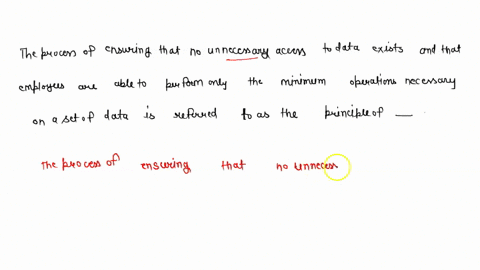 The process of ensuring that no unnecessary access to data exists and that
employees are able to perform only the minimum operations necessary
on a set of data is referred to as the principle of __ .
The process of ensuring that no unnecess